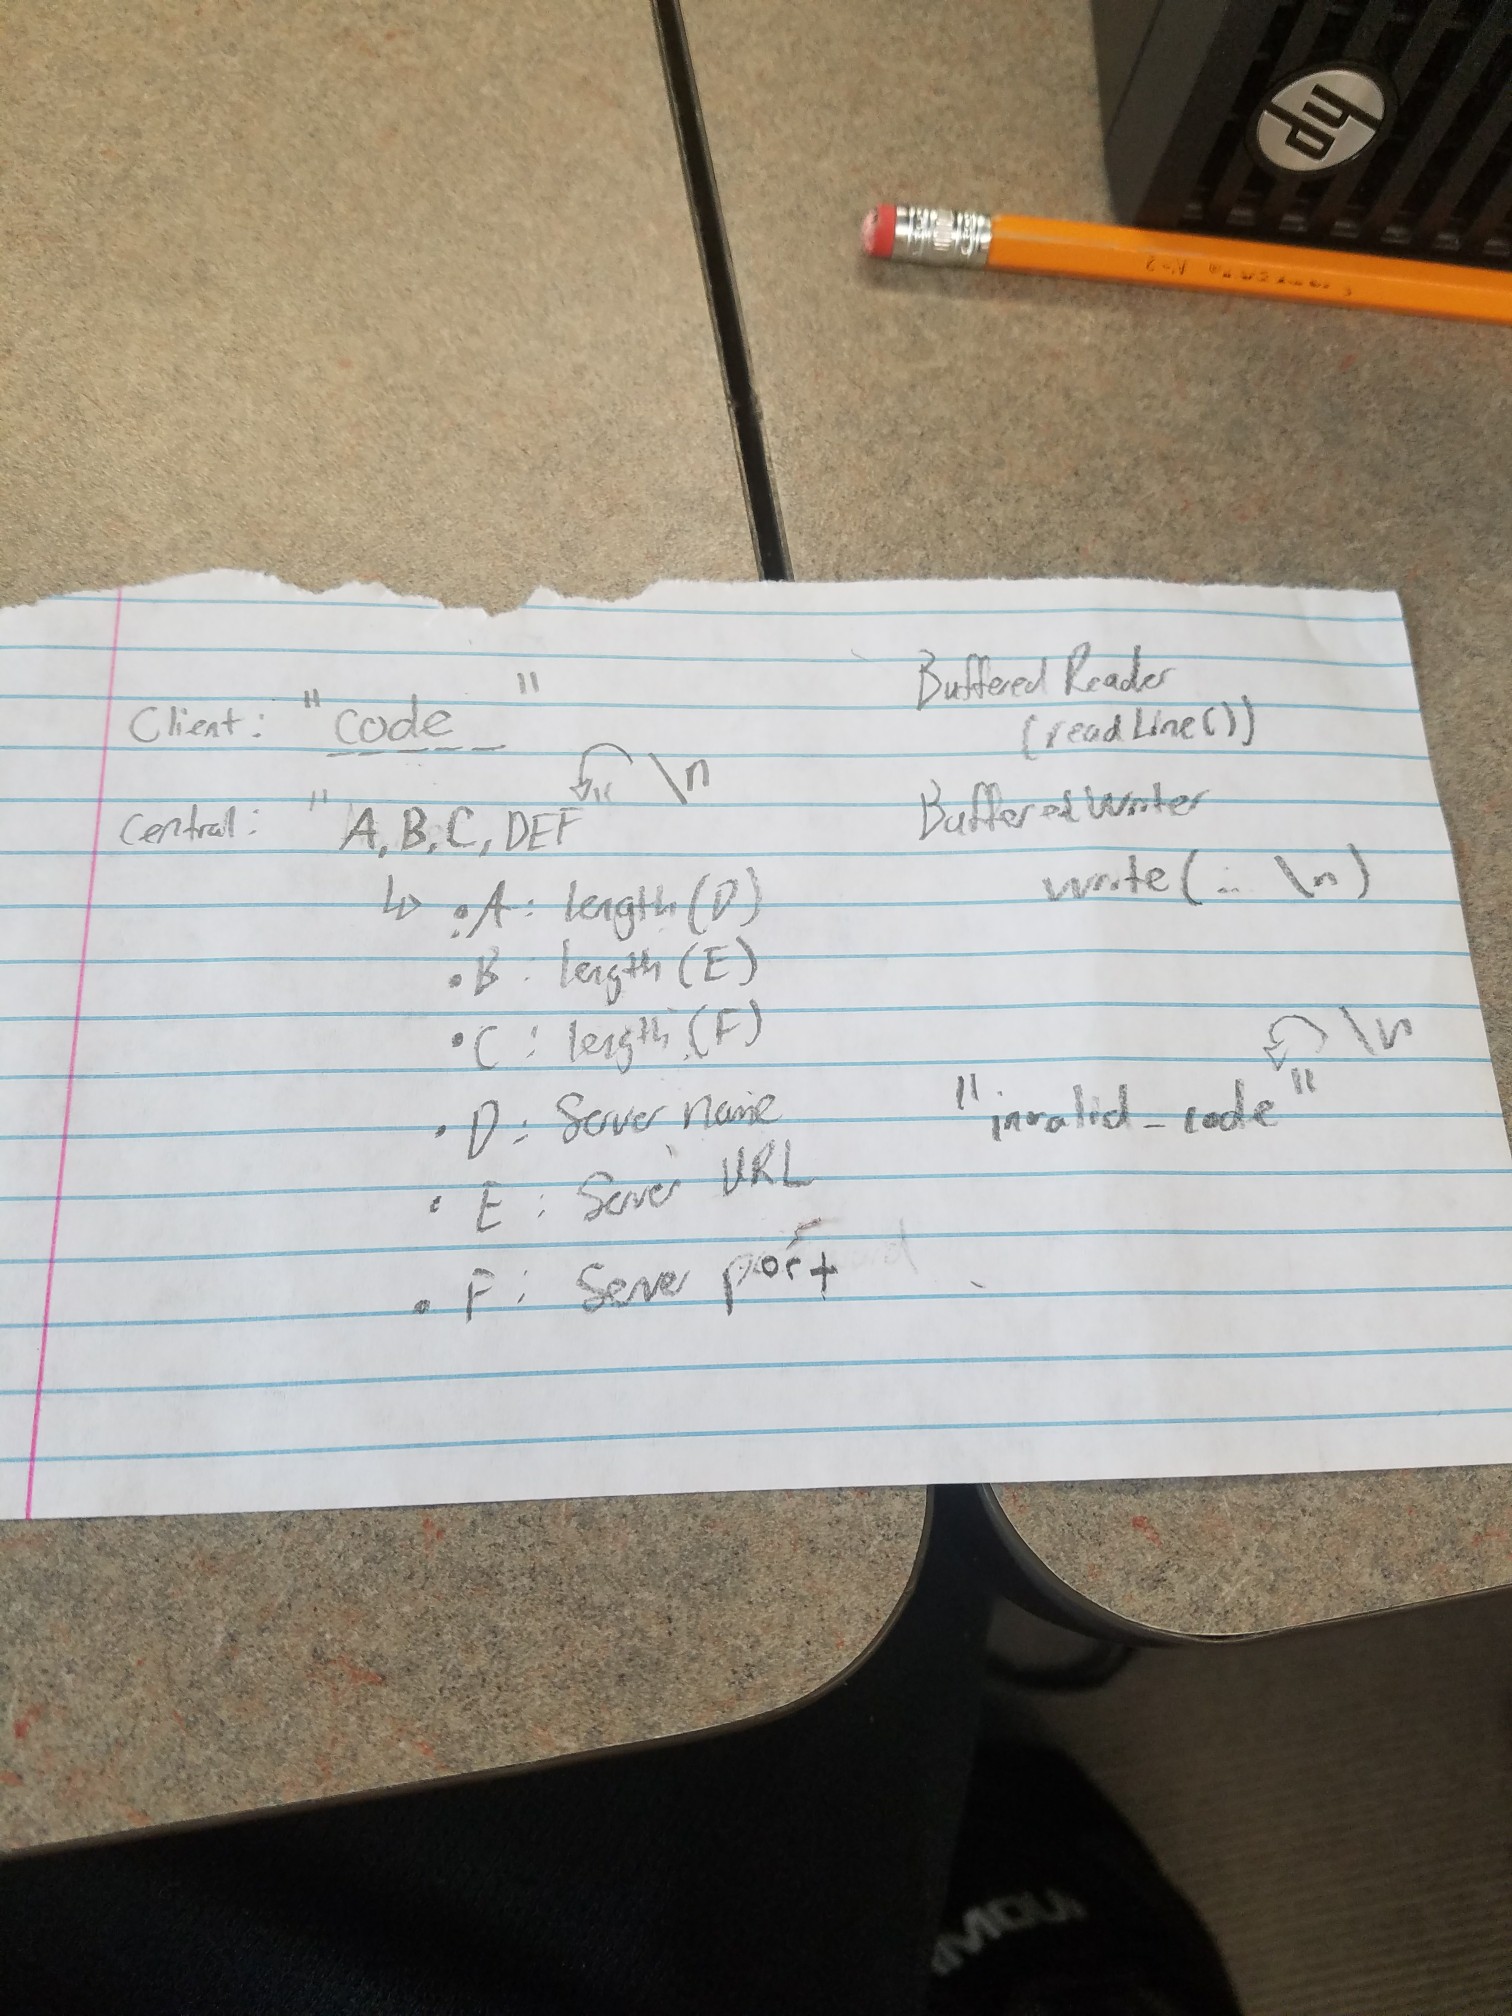 Client: "code"
Central: "A,B,C,DEF" \n
↳ • A: length(D)
• B: length(E)
• C: length(F)
• D: Server name
• E: Server URL
• F: Server port
Buffered Reader
(readLine())
BufferedWriter
write(... \n)
"invalid_code" \n
hp